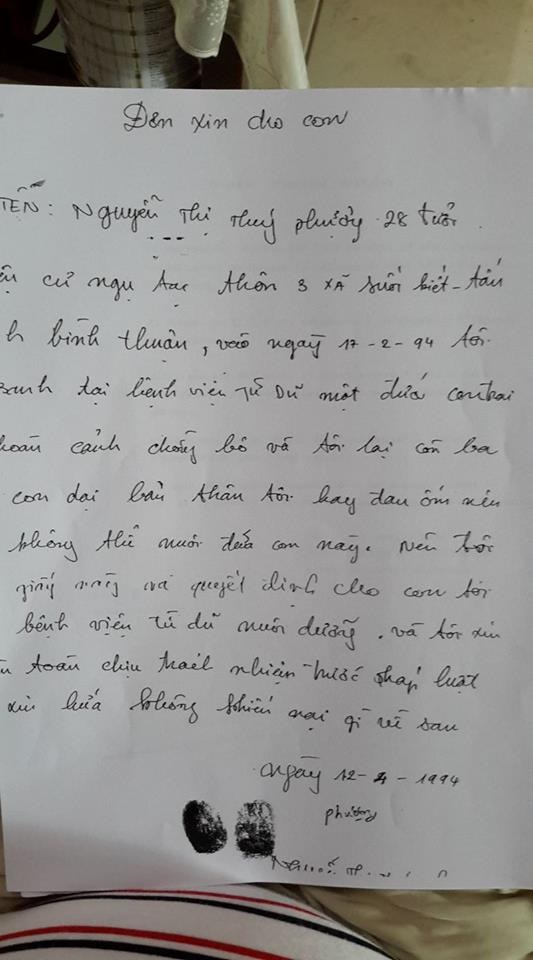 Đơn xin cho con
TÊN: Nguyễn Thị Thuý phượng 28 tuổi
cư ngụ tại thôn 3 xã suối kiết - tấn
h bình thuận, vào ngày 17-2-94 tôi
sanh tại bệnh viện Từ Dũ một đứa con trai
hoàn cảnh chồng bỏ và tôi lại còn ba
con dại bản thân tôi hay đau ốm nên
không thể nuôi đứa con này. Nên tôi
và quyết định cho con tôi
bệnh viện từ dũ nuôi dưỡng. và tôi xin
toàn chịu trách nhiệm trước pháp luật
xin hứa không khiến nại gì về sau
ngày 12-4-1994
phượng